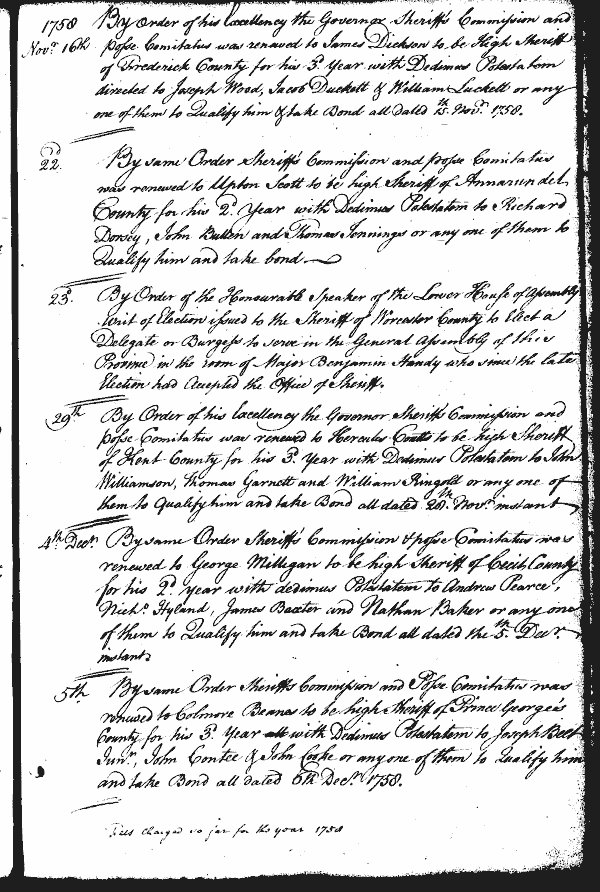 1758 By Order of his Excellency the Governor Sheriffs Commission and
Novr. 16th posse Comitatus was renewed to James Dickson to be High Sheriff
of Frederick County for his 3d. Year with Dedimus Potestatem
directed to Joseph Wood, Jacob Duckett & William Luckett or any
one of them to Qualify him & take Bond all dated 15th. Novr. 1758.
22d. By same Order Sheriffs Commission and posse Comitatus
was renewed to Upton Scott to be high Sheriff of Annarundel
County for his 2d. Year with Dedimus Potestatem to Richard
Dorsey, John Bullen and Thomas Jennings or any one of them to
Qualify him and take bond
23d. By Order of the Honourable Speaker of the Lower House of Assembly
writ of Election issued to the Sheriff of Worcester County to Elect a
Delegate or Burgess to serve in the General Assembly of this
Province in the room of Major Benjamin Handy who since the late
Election had Accepted the Office of Sheriff.
29th By Order of his Excellency the Governor Sheriffs Commission and
posse Comitatus was renewed to Hercules Coutts to be high Sheriff
of Kent County for his 3d. Year with Dedimus Potestatem to John
Williamson, Thomas Garnett and William Ringold or any one of
them to Qualify him and take Bond all dated 28th. Novr. instant
4th. Decr. By same Order Sheriffs Commission & posse Comitatus was
renewed to George Milligan to be high Sheriff of Cecil County
for his 2d. year with dedimus Potestatem to Andrew Pearce,
Nichs. Hyland, James Baxter and Nathan Baker or any one
of them to Qualify him and take Bond all dated the 5th. Decr.
instant
5th By same Order Sheriffs Commission and Posse Comitatus was
renewed to Colmore Beanes to be high Sheriff of Prince George's
County for his 3d. Year all with Dedimus Potestatem to Joseph Belt
Junr., John Contee & John Cooke or any one of them to Qualify him
and take Bond all dated 6th Decr. 1758.
Charged so far for the year 1758